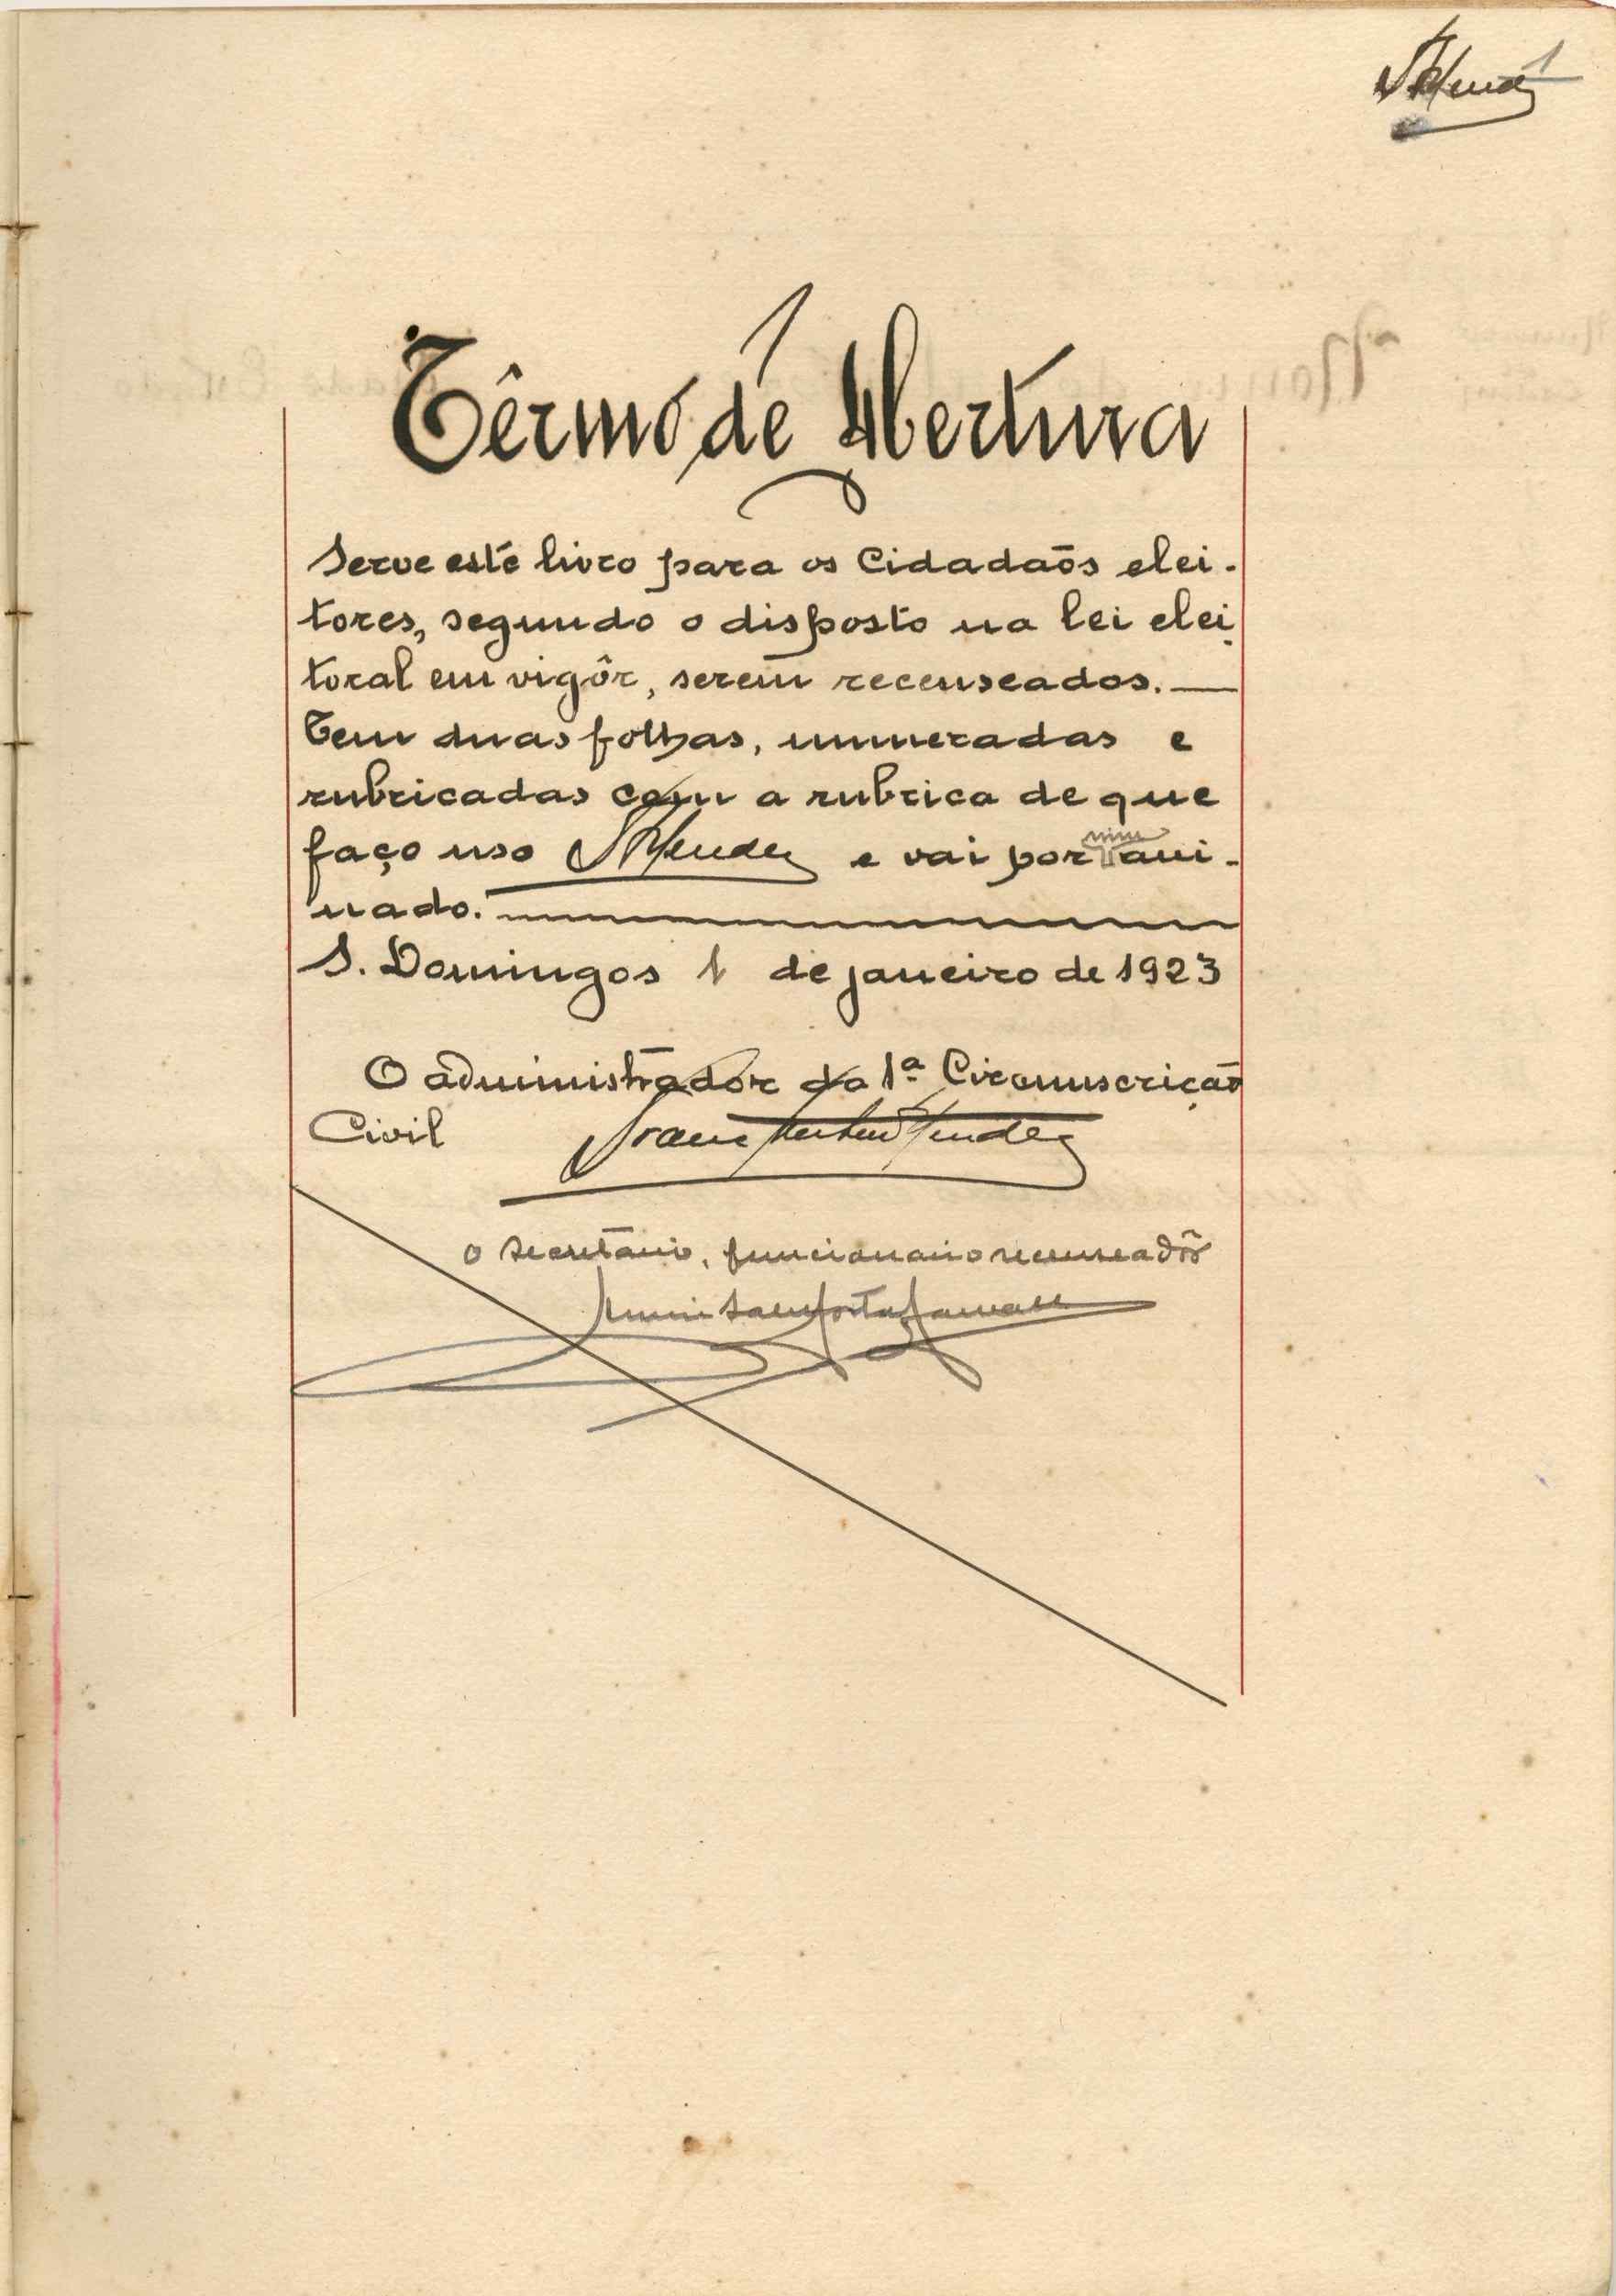 1
Têrmo de Abertura
Serve este livro para os Cidadaõs elei-
tores, segundo o disposto na lei elei
toral em vigôr, serem recenseados.
Tem duas folhas, numeradas e
rubricadas com a rubrica de que
faço uso Mendes e vai por mim aui-
nado.
S. Domingos 1 de janeiro de 1923
O administrador da 1ª Circunscrição
Civil Mendes
O Secretário, funcionario recenseadôr